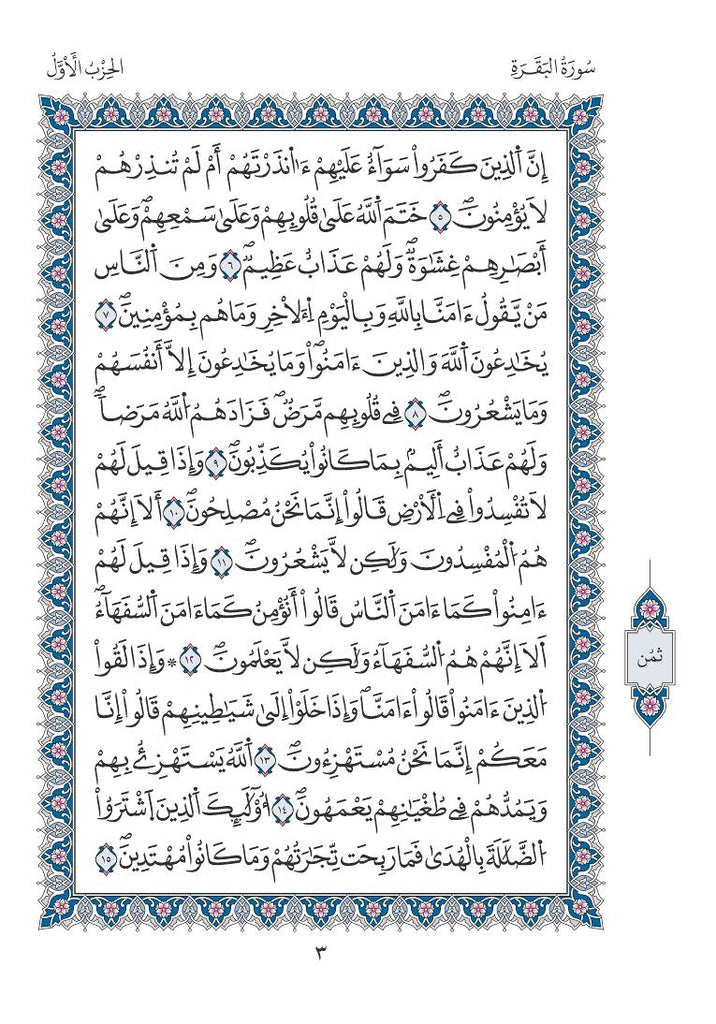 سُورَةُ البَقَرَةِ
الحِزْبُ الْأَوَّلُ
إِنَّ اَ۬لذِينَ كَفَرُواْ سَوَآءٌ عَلَيْهِمُۥٓ ءَآنذَرْتَهُمُۥٓ أَمْ لَمْ تُنذِرْهُمْ
لَا يُؤْمِنُونَۖ ٥ خَتَمَ اَ۬للَّهُ عَلَىٰ قُلُوبِهِمْ وَعَلَىٰ سَمْعِهِمْۖ وَعَلَىٰٓ
أَبْصَٰرِهِمْ غِشَٰوَةٞۖ وَلَهُمْ عَذَابٌ عَظِيمٞۖ ٦ وَمِنَ اَ۬لنَّاسِ
مَنْ يَّقُولُ ءَامَنَّا بِاللَّهِ وَبِالْيَوْمِ اِ۬لَاخِرِ وَمَا هُم بِمُؤْمِنِينَۖ ٧
يُخَٰدِعُونَ اَ۬للَّهَ وَالذِينَ ءَامَنُواْۖ وَمَا يُخَٰدِعُونَ إِلَّآ أَنفُسَهُمْ
وَمَا يَشْعُرُونَۖ ٨ فِے قُلُوبِهِم مَّرَضٞۖ فَزَادَهُمُ اُ۬للَّهُ مَرَضاٗۖ
وَلَهُمْ عَذَابٌ أَلِيمُۢ بِمَا كَانُواْ يُكَذِّبُونَۖ ٩ وَإِذَا قِيلَ لَهُمْ
لَا تُفْسِدُواْ فِے اِ۬لَارْضِ قَالُوٓاْ إِنَّمَا نَحْنُ مُصْلِحُونَۖ ١٠ أَلَآ إِنَّهُمْ
هُمُ اُ۬لْمُفْسِدُونَ وَلَٰكِن لَّا يَشْعُرُونَۖ ١١ وَإِذَا قِيلَ لَهُمُۥٓ
ءَامِنُواْ كَمَآ ءَامَنَ اَ۬لنَّاسُ قَالُوٓاْ أَنُؤْمِنُ كَمَآ ءَامَنَ اَ۬لسُّفَهَآءُۖ
أَلَآ إِنَّهُمْ هُمُ اُ۬لسُّفَهَآءُ وَلَٰكِن لَّا يَعْلَمُونَۖ ١٢ ۞ وَإِذَا لَقُواْ
اُ۬لذِينَ ءَامَنُواْ قَالُوٓاْ ءَامَنَّاۖ وَإِذَا خَلَوِاْ اِلَىٰ شَيَٰطِينِهِمْ قَالُوٓاْ إِنَّا
مَعَكُمُۥٓ إِنَّمَا نَحْنُ مُسْتَهْزِءُونَۖ ١٣ اَ۬للَّهُ يَسْتَهْزِۓُ بِهِمْ
وَيَمُدُّهُمْ فِے طُغْيَٰنِهِمْ يَعْمَهُونَۖ ١٤ أُوْلَٰٓئِكَ اَ۬لذِينَ اَ۪شْتَرَوُاْ
اُ۬لضَّلَٰلَةَ بِالْهُدَىٰ فَمَا رَبِحَت تِّجَٰرَتُهُمْ وَمَا كَانُواْ مُهْتَدِينَۖ ١٥
ثُمُن
٣